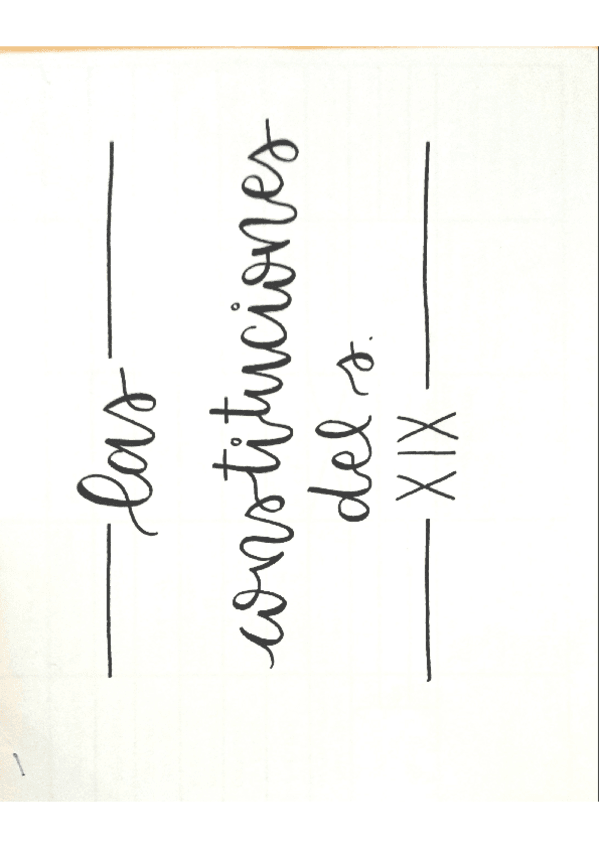 las
constituciones
del s.
XIX